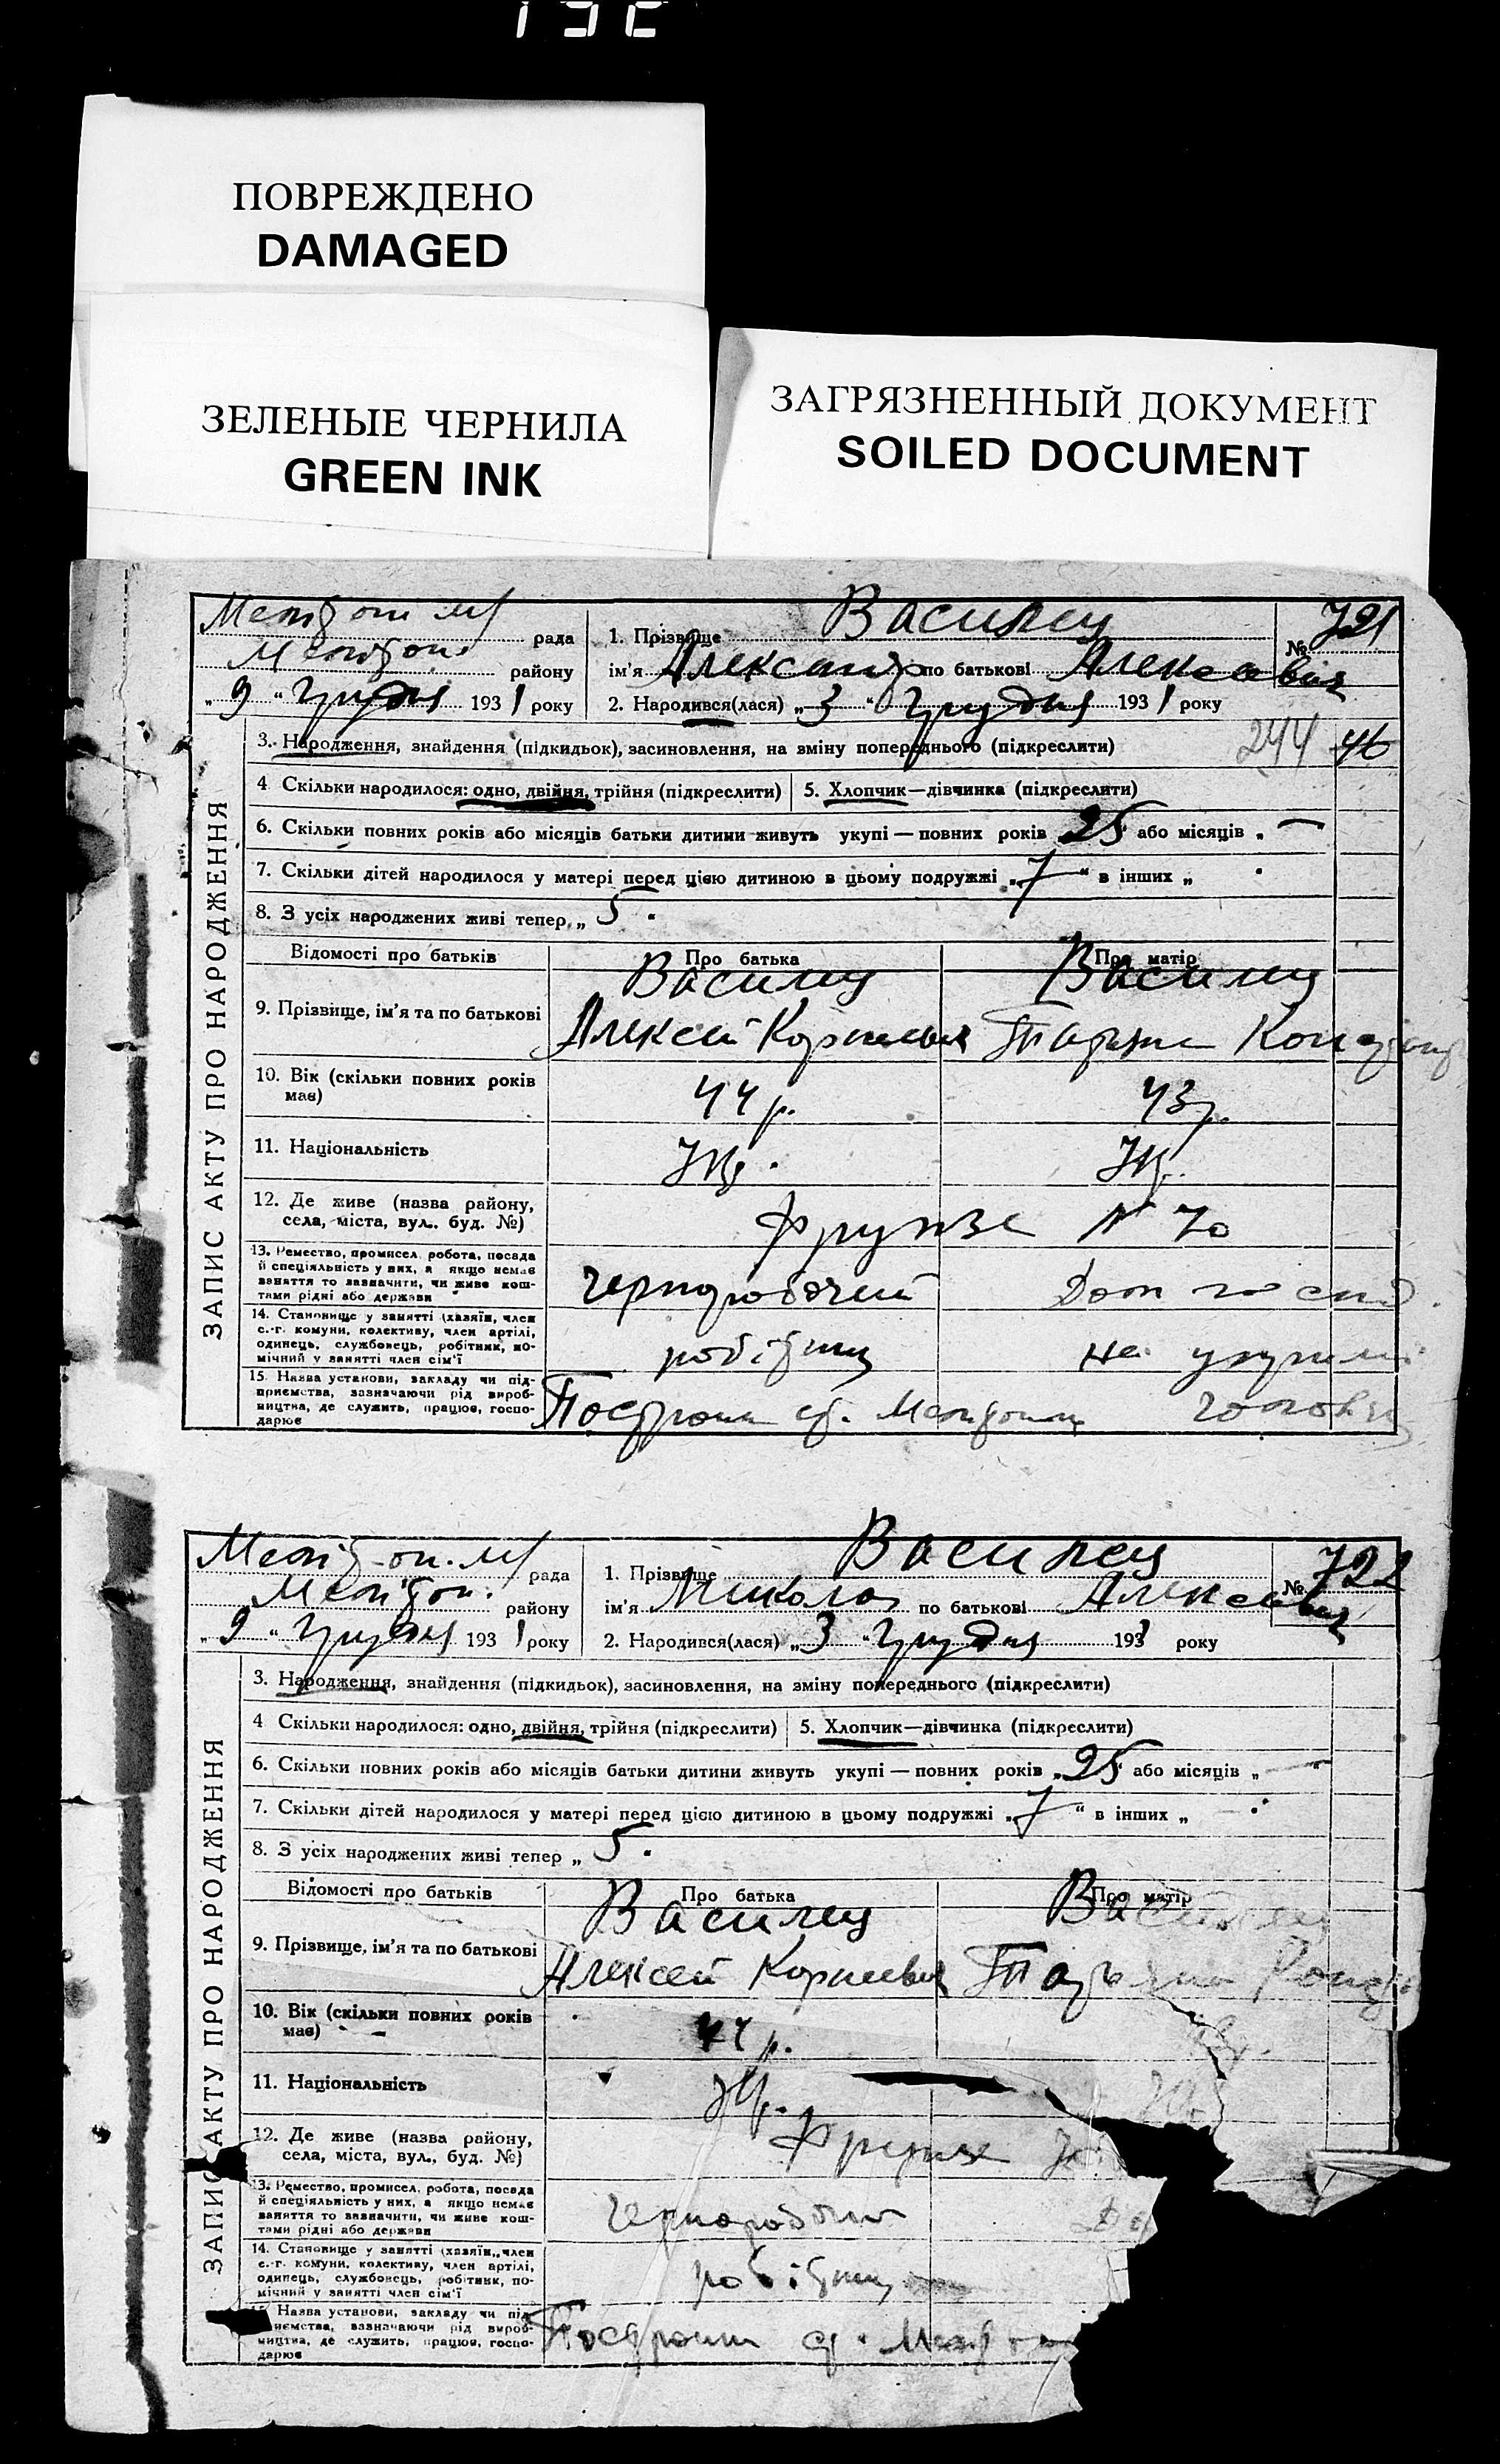 ПОВРЕЖДЕНО
DAMAGED
ЗЕЛЕНЫЕ ЧЕРНИЛА
GREEN INK
ЗАГРЯЗНЕННЫЙ ДОКУМЕНТ
SOILED DOCUMENT
ЗАПИС АКТУ ПРО НАРОДЖЕННЯ
рада
району
„ 9 “ Грудня 1931 року
1. Прізвище Василец
№ 721
ім'я Александр по батькові Алексеевич
2. Народився(лася) „ 3 “ Грудня 1931 року
3. Народження, знайдення (підкидьок), засиновлення, на зміну попереднього (підкреслити)
244 46
4 Скільки народилося: одно, двійня, трійня (підкреслити)
5. Хлопчик—дівчинка (підкреслити)
6. Скільки повних років або місяців батьки дитини живуть укупі — повних років 25 або місяців „ —
7. Скільки дітей народилося у матері перед цією дитиною в цьому подружжі „ 7 “ в інших „
8. З усіх народжених живі тепер „ 5
Відомості про батьків
Про батька
Про матір
9. Прізвище, ім'я та по батькові
Василец
Алексей
Василец
10. Вік (скільки повних років має)
44 р.
43 р.
11. Національність
12. Де живе (назва району,
села, міста, вул., буд. №)
Фрунзе № 70
13. Ремество, промисел, робота, посада
й спеціяльність у них, а якщо немає
заняття то зазначити, чи живе кош-
тами рідні або держави
черноробочий
14. Становище у занятті (хазяїн, член
с.-г. комуни, колективу, член артілі,
одинець, службовець, робітник, по-
мічний у занятті член сім'ї
робітник
на
15. Назва установи, закладу чи під-
приємства, зазначаючи рід вироб-
ництва, де служить, працює, госпо-
дарює
ЗАПИС АКТУ ПРО НАРОДЖЕННЯ
рада
району
„ 9 “ Грудня 1931 року
1. Прізвище Василец
№ 722
ім'я Микола по батькові Алексеевич
2. Народився(лася) „ 3 “ Грудня 1931 року
3. Народження, знайдення (підкидьок), засиновлення, на зміну попереднього (підкреслити)
4 Скільки народилося: одно, двійня, трійня (підкреслити)
5. Хлопчик—дівчинка (підкреслити)
6. Скільки повних років або місяців батьки дитини живуть укупі — повних років „ 25 або місяців „ — “
7. Скільки дітей народилося у матері перед цією дитиною в цьому подружжі „ 7 “ в інших „
8. З усіх народжених живі тепер „ 5
Відомості про батьків
Про батька
Про матір
9. Прізвище, ім'я та по батькові
Василец
Алексей Корнеевич
10. Вік (скільки повних років
має)
44 р.
11. Національність
12. Де живе (назва району,
села, міста, вул., буд. №)
Фрунзе
13. Ремество, промисел, робота, посада
й спеціяльність у них, а якщо немає
заняття то зазначити, чи живе кош-
тами рідні або держави
14. Становище у занятті (хазяїн, член
с.-г. комуни, колективу, член артілі,
одинець, службовець, робітник, по-
мічний у занятті член сім'ї
робітник
Назва установи, закладу чи під-
приємства, зазначаючи рід вироб-
ництва, де служить, працює, госпо-
дарює